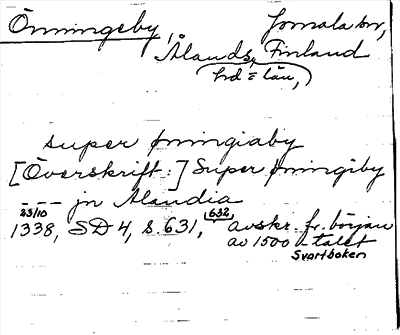 Önningeby, Jomala sn,
Ålands, Finland
hd = län,
super þningiaby
[Överskrift:] Super þningiby
--- jn Alandia
23/10
1338, SD 4, s. 631, 632, avskr. fr. början
av 1500-talet
Svartboken